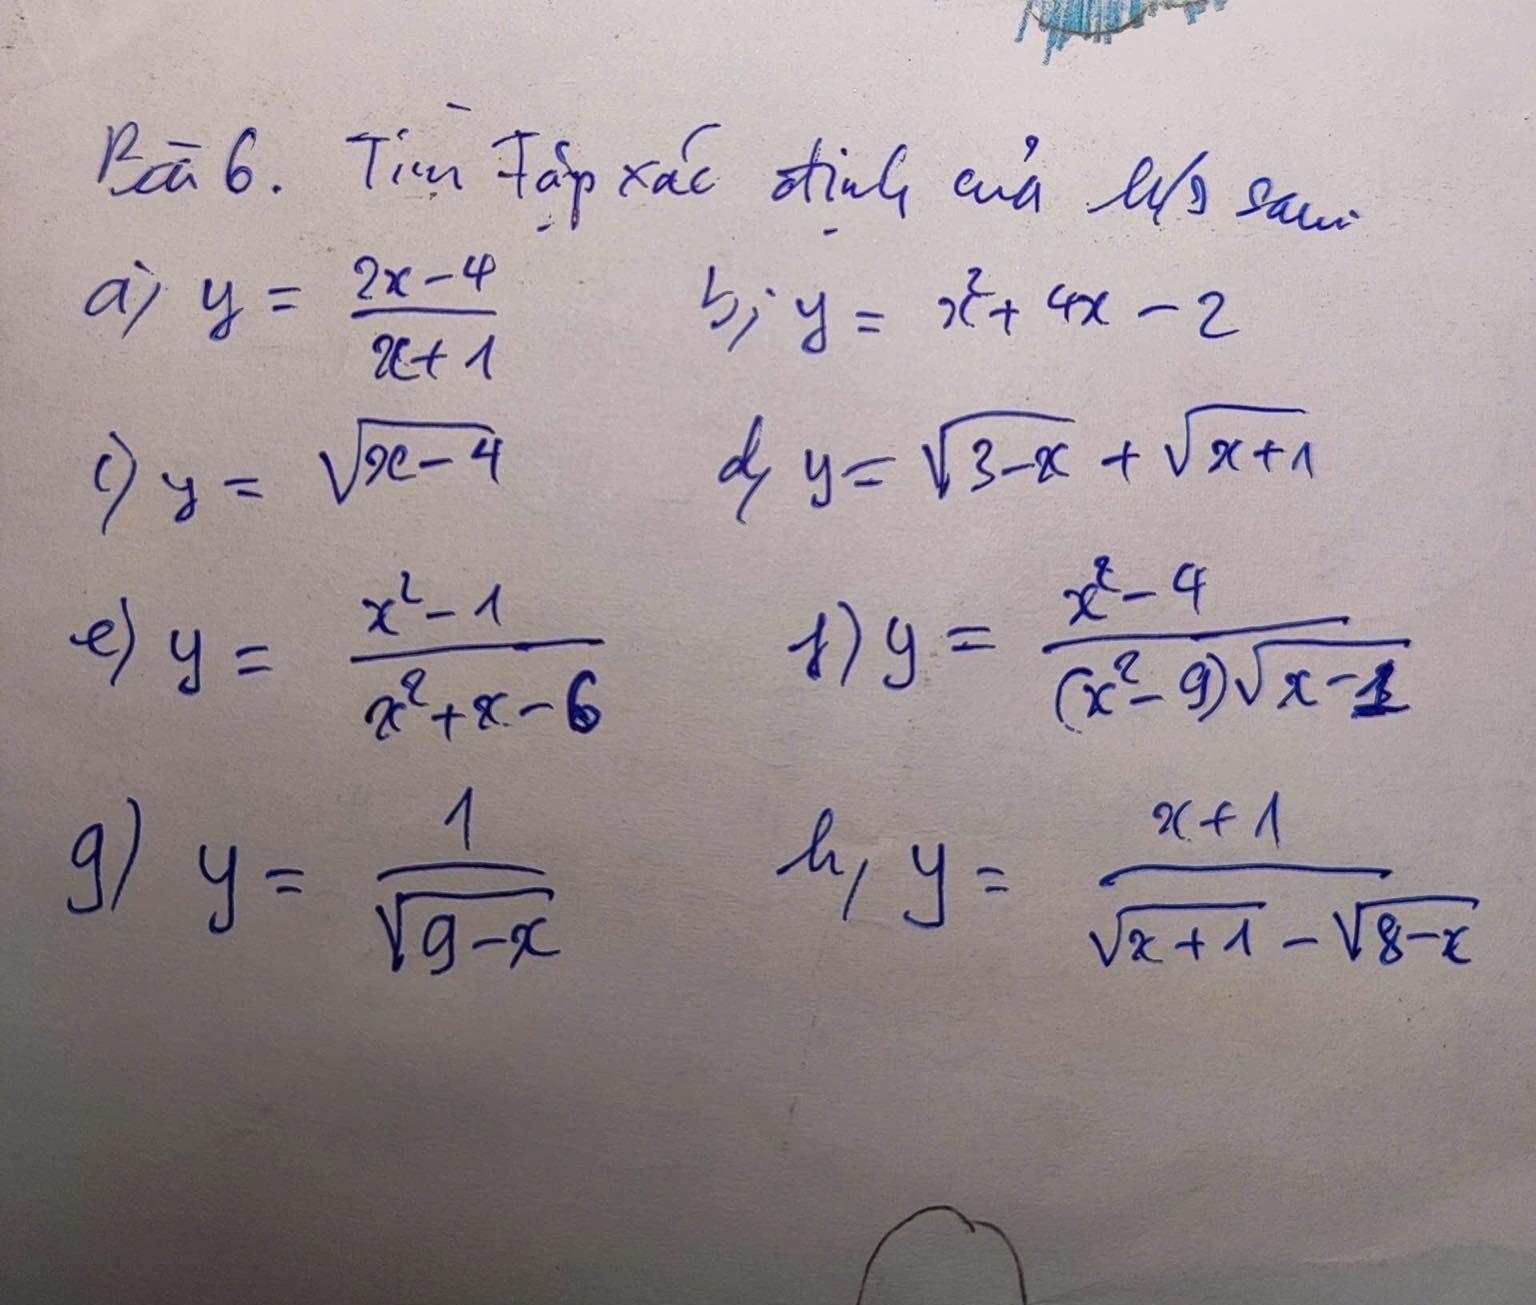 Bài 6. Tìm tập xác định của h/s sau:
a) y = \frac{2x-4}{x+1} b, y = x² + 4x - 2
c) y = √(x-4) d, y = √(3-x) + √(x+1)
e) y = \frac{x²-1}{x²+x-6} f) y = \frac{x²-4}{(x²-9)√(x-1)}
g) y = \frac{1}{√(9-x)} h, y = \frac{x+1}{√(x+1) - √(8-x)}